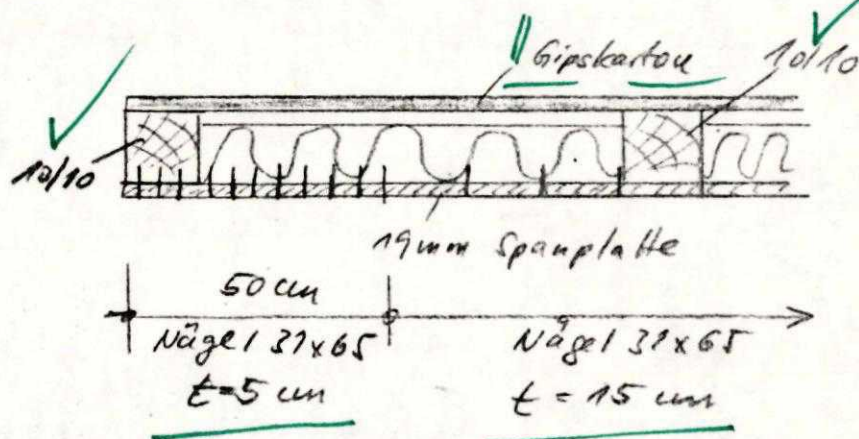 Gipskarton
10/10
10/10
19mm Spanplatte
50 cm
Nägel 31x65
Nägel 31x65
t=5 cm
t = 15 cm